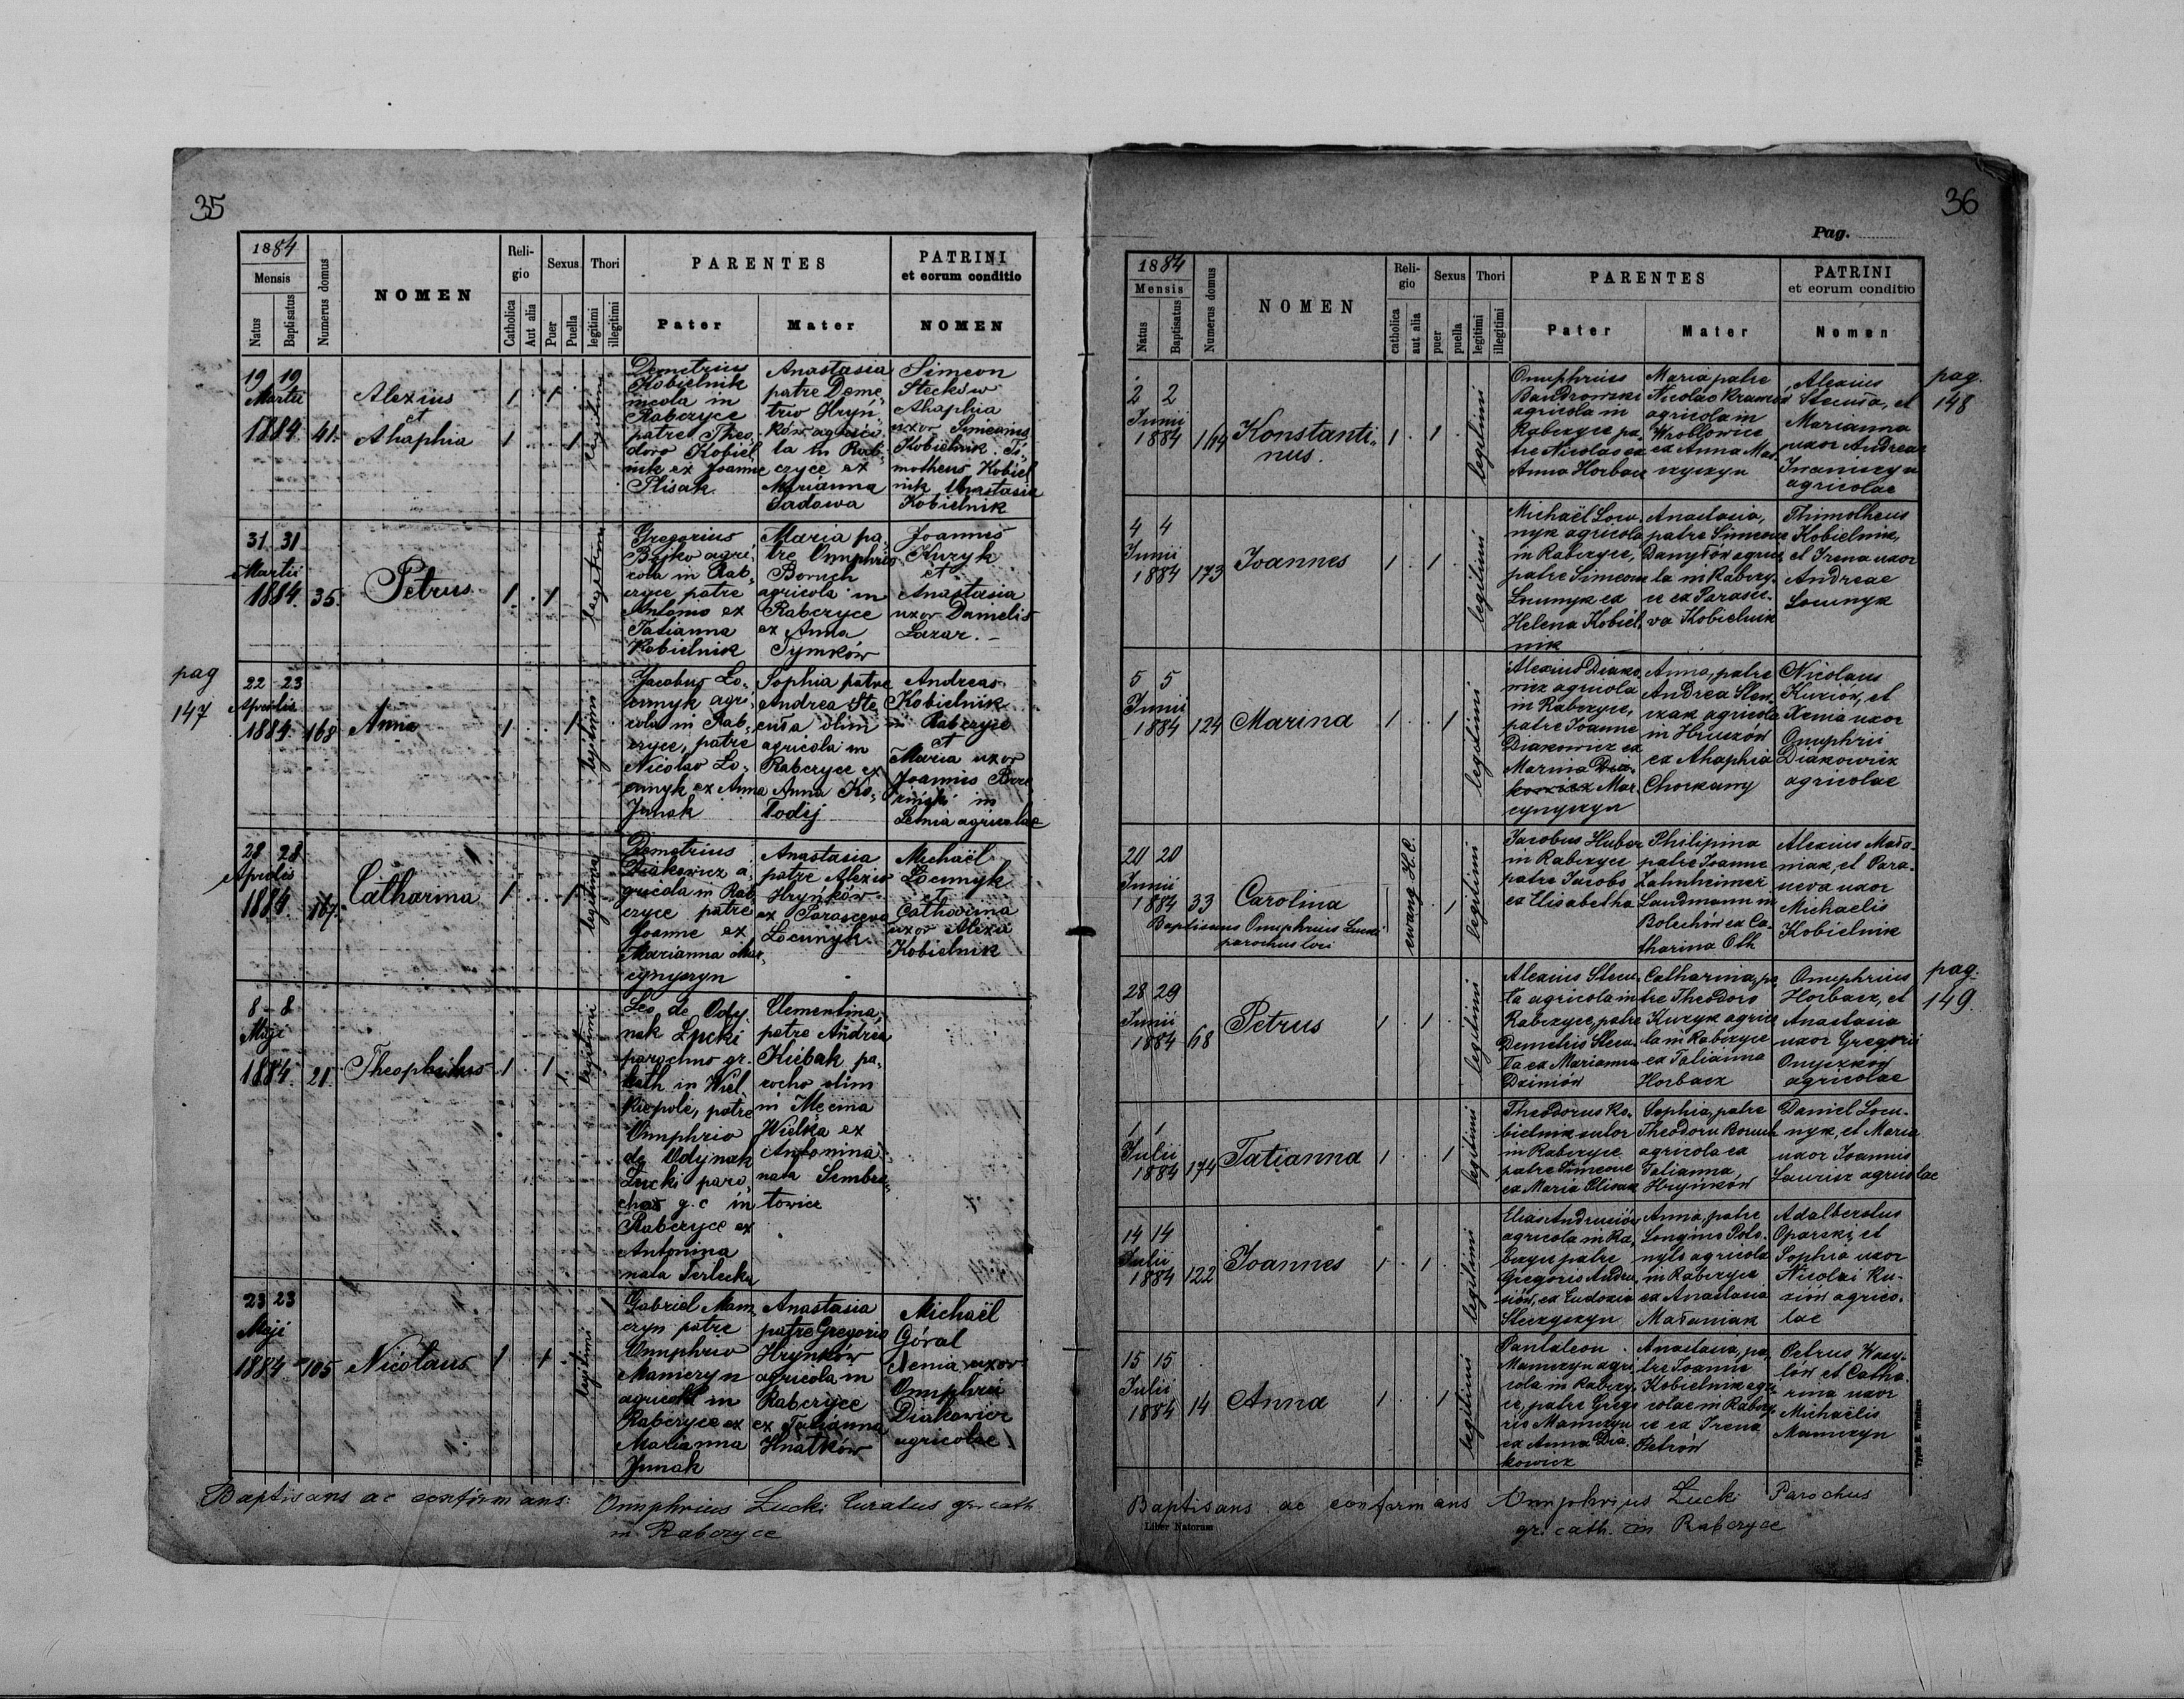 35
1884
Mensis
Natus
Baptisatus
Numerus domus
NOMEN
Reli-
gio
Catholica
Aut alia
Sexus
Puer
Puella
Thori
legitimi
illegitimi
PARENTES
Pater
Mater
PATRINI
et eorum conditio
NOMEN
19 19
Martii
1884 41.
Alexius
et
Ahaphia
1 1
1 1
legitimi
Demetrius
Kobielnik
incola in
Rabczyce
patre Theo-
doro Kobiel
nik ex Joanne
Plisak
Anastasia
patre Deme
trio Hryń
ków agrico
la in Rab-
czyce ex
Marianna
Sadowa
Simeon
Stecków
Ahaphia
uxor Simeonis
Kobielnik. Ti
motheus Kobiel
nik Anastasia
Kobielnik
31 31
Martii
1884. 35.
Petrus
1 1
legitimi
Gregorius
Bojko agri
cola in Rab
czyce patre
Antonio ex
Tatianna
Kobielnik
Maria pa
tre Onuphrio
Boruch
agricola in
Rabczyce
ex Anna
Tymków
Joannes
Kuzyk
et
Anastasia
uxor Danielis
Lazar. –
pag
147
22 23
Aprilis
1884 168
Anna
1 1
legitimi
Jacobus Lo-
cunyk agri
cola in Rab
czyce, patre
Nicolao Lo-
cunyk ex Anna
Junak
Sophia patre
Andrea Ste
cuła olim
agricola in
Rabczyce ex
Anna Ko-
łodij
Andreas
Kobielnik
in Rabczyce
et
Maria uxor
Joannis
in
Letnia agricolae
28 28
Aprilis
1884 167.
Catharina
1 1
legitimi
Demetrius
Diakowicz a
gricola in Rab
czyce patre
Joanne ex
Marianna Mar
cynyszyn
Anastasia
patre Alexio
Hryńków
ex Parasceva
Locunyk
Michaël
Locunyk
et
Catharina
uxor Alexii
Kobielnik
8 8
Maji
1884. 21.
Theophilus
1 1
legitimi
Leo de Ody
nak Łucki
parochno gr.
kath in Wiel
kiepole, patre
Onuphrio
de Odynak
Łucki paro
chas g. c in
Rabczyce ex
Antonina
nata Terlecka
Clementina
patre Andrea
Kuibak pa
rocho olim
in Męcina
Wielka ex
Antonina
nata Sembra
towicz
23 23
Maji
1884 105
Nicolaus
1 1
legitimi
Gabriel Mam
czyn patre
Onuphrio
Mamczyn
agricola in
Rabczyce ex
Marianna
Junak
Anastasia
patre Gregorio
Hrynków
agricola in
Rabczyce
ex Tatianna
Hnatków
Michaël
Góral
Xenia uxor
Onuphrii
Diakowicz
agricolae
Baptisans ac confirmans: Onuphrius Łucki Curatus gr. cath.
in Rabczyce
36
Pag.
1884
Mensis
Natus
Baptisatus
Numerus domus
NOMEN
Reli-
gio
catholica
aut alia
Sexus
puer
puella
Thori
legitimi
illegitimi
PARENTES
Pater
Mater
PATRINI
et eorum conditio
Nomen
2 2
Junii
1884 164
Konstanti-
nus.
1 1
legitimi
Onuphrius
Bandrowski
agricola in
Rabczyce pa-
tre Nicolao ex
Anna Horbacz
Maria patre
Nicolao Krawców
agricola in
Wroblowice
ex Anna Mar
czyszyn
Alexius
Stecuła, et
Marianna
uxor Andreae
Iwaniszyn
agricolae
pag.
148
4 4
Junii
1884 173
Joannes
1 1
legitimi
Michaël Locu
nyk agricola
in Rabczyce,
patre Simeone
Locunyk ex
Helena Kobiel
nik
Anastasia,
patre Simeone
Danyłów agrico
la in Rabczy-
ce ex Parasce-
va Kobielnik
Thimotheus
Kobielnik,
et Irena uxor
Andreae
Locunyk
5 5
Junii
1884 124
Marina
1 1
legitimi
Alexius Diako
wicz agricola
in Rabczyce,
patre Joanne
Diakowicz ex
Marina Dia-
kowicz Mar-
cynyszyn
Anna, patre
Andrea Slon
czak agricola
in Hruszow
ex Ahaphia
Chorkawy
Nicolaus
Kuziów, et
Xenia uxor
Onuphrii
Diakowicz
agricolae
20 20
Junii
1884 33
Carolina
ewang. H.C.
1
legitimi
Baptisans Onuphrius Łucki
parochus loci
Jacobus Huber
in Rabczyce
patre Jacobo
ex Elisabetha
Philipina
patre Joanne
Zahnheimer
Landmann in
Bolechów ex Ca-
tharina Oth
Alexius Mała-
niak, et Para-
sceva uxor
Michaelis
Kobielnik
28 29
Junii
1884 68
Petrus
1 1
legitimi
Alexius Stecu-
ła agricola in
Rabczyce, patre
Demetrio Stecu-
ła ex Marianna
Dziniów
Catharina, pa
tre Theodoro
Kuzyk agrico
la in Rabczyce
ex Tatianna
Horbacz
Onuphrius
Horbacz, et
Anastasia
uxor Gregorii
Onyszków
agricolae
pag.
149.
1 1
Julii
1884 174
Tatianna
1 1
legitimi
Theodorus Ko-
bielnik sutor
in Rabczyce
patre Simeone
ex Maria Plisak
Sophia, patre
Theodoro Boruch
agricola ex
Tatianna
Hryńków
Daniel Locu-
nyk, et Maria
uxor Joannis
Łaurisz agricolae
14 14
Julii
1884 122
Joannes
1 1
legitimi
Elias Andrusiów
agricola in Ra
bczyce patre
Gregorio Andru
siów, ex Eudoxia
Steczyszyn
Anna, patre
Longino Poło-
nyło agricola
in Rabczyce
ex Anastasia
Małaniak
Adalbertus
Oparski, et
Sophia uxor
Nicolai Ku-
ziów agrico-
lae
15 15
Julii
1884 14
Anna
1 1
legitimi
Pantaleon
Mamczyn agri
cola in Rabczy
ce, patre Grego
rio Mamczyn
ex Anna Dia
kowicz
Anastasia, pa-
tre Joanne
Kobielnik agri
colae in Rabczy
ce ex Irena
Petrów
Petrus Wasy-
lów et Catha
rina uxor
Michaëlis
Mamczyn
Baptisans ac confirmans Onuphrius Łucki Parochus
gr. cath. in Rabczyce
Liber Natorum